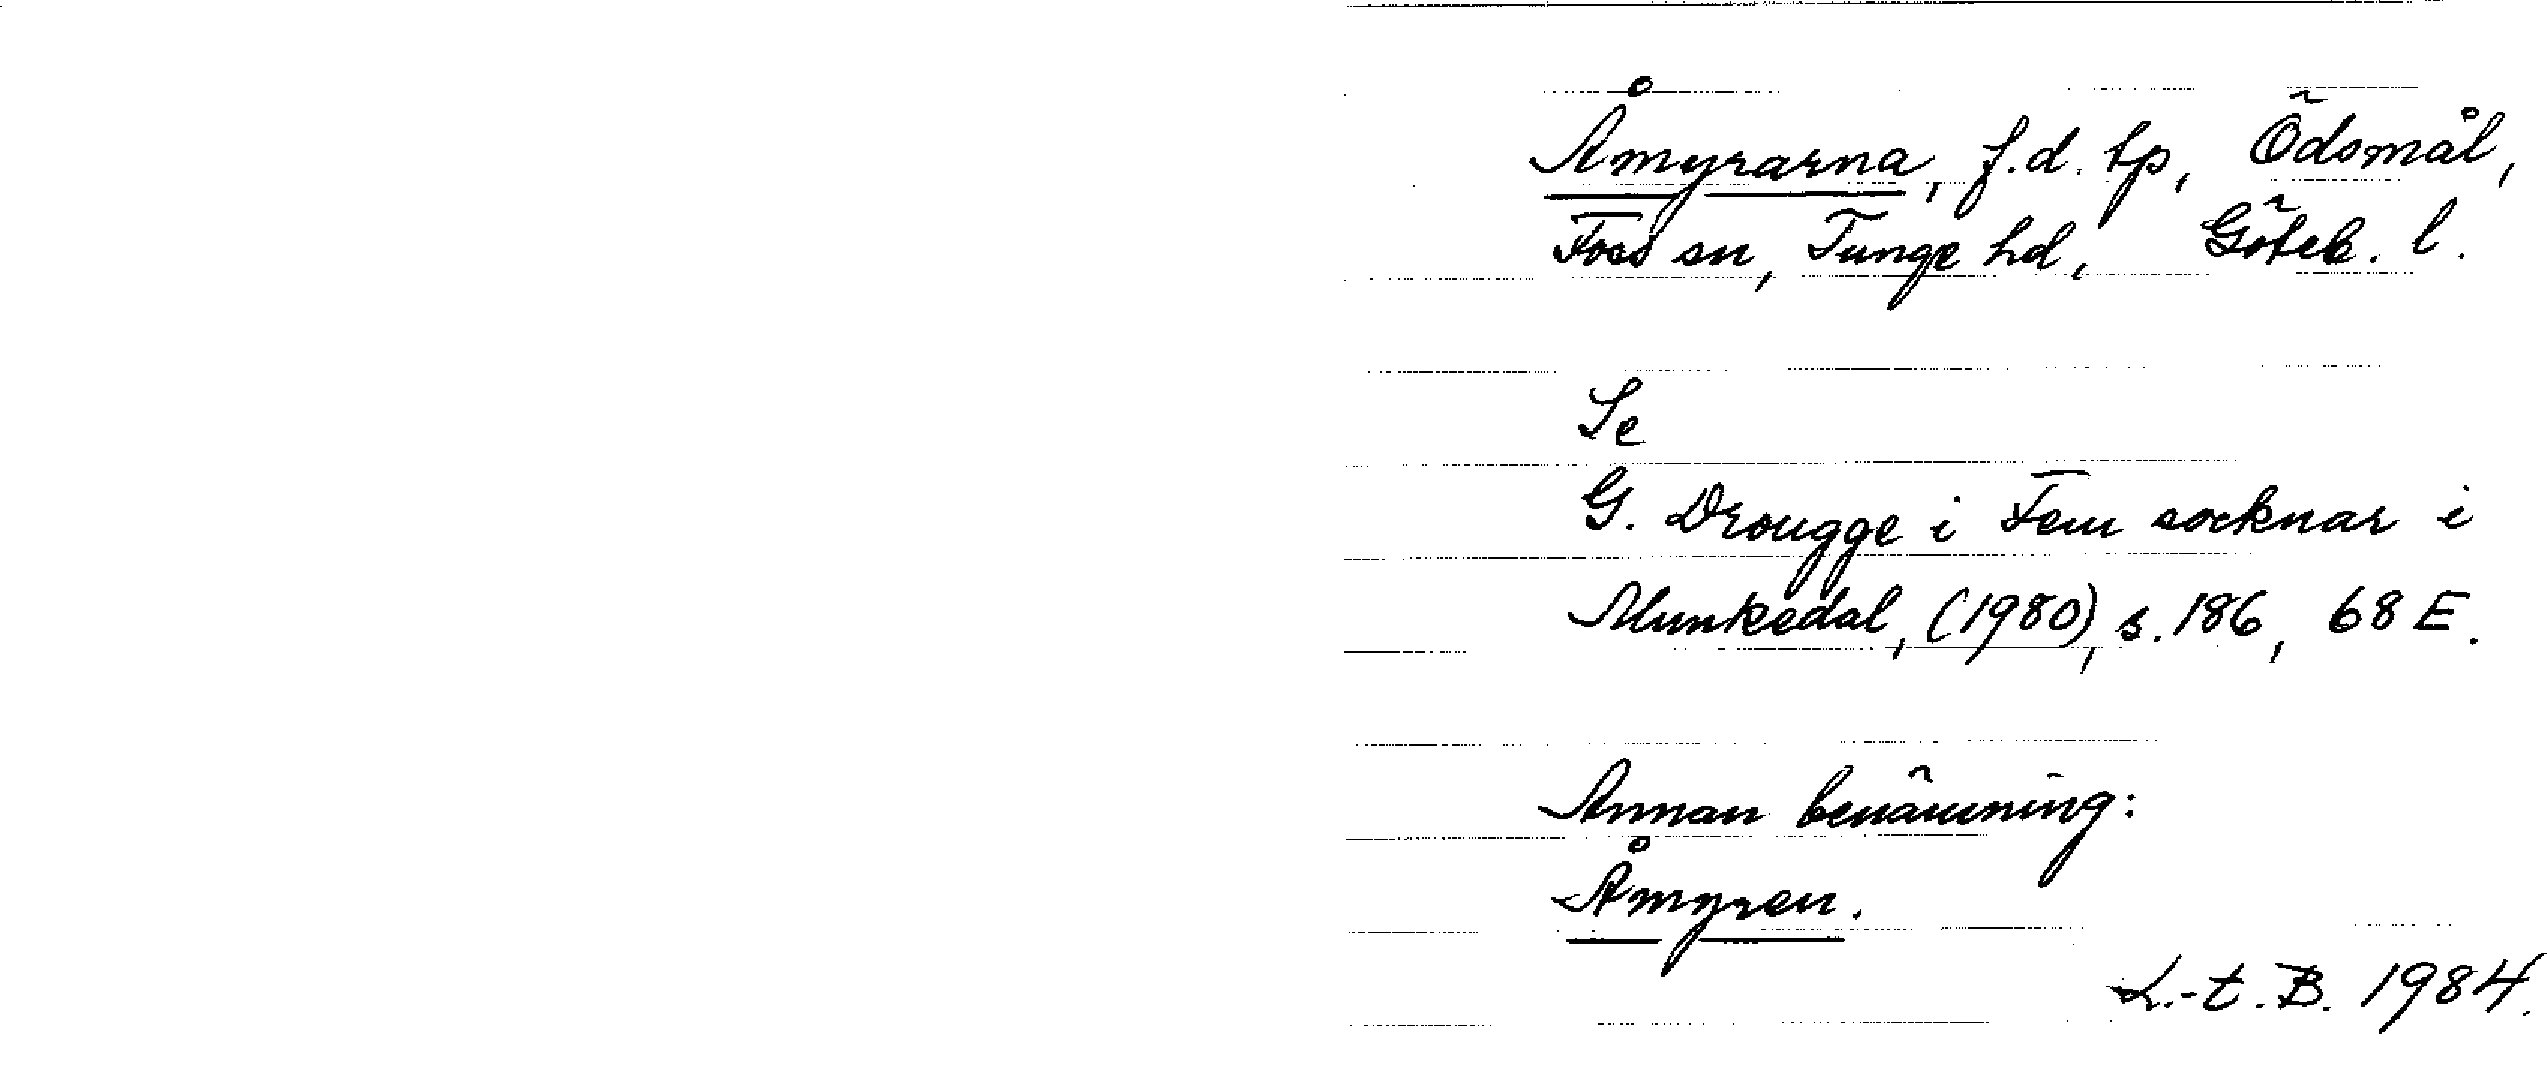 Åmyrarna, f.d. tp, Ödsmål,
Foss sn, Tunge hd, Göteb. l.
Se
G. Drougge i Fem socknar i
Munkedal, (1980), s. 186, 68 E.
Annan benämning:
Åmyren.
L.-t. B. 1984.